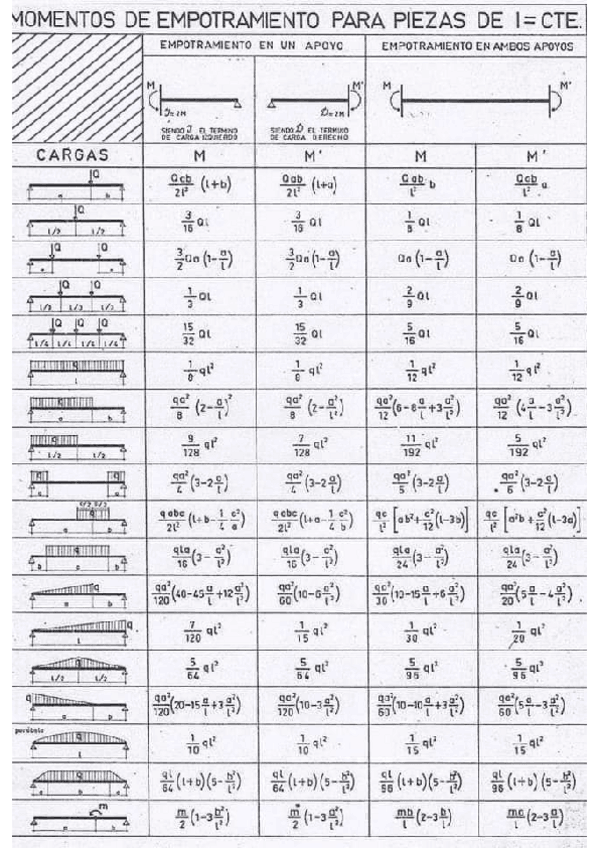 MOMENTOS DE EMPOTRAMIENTO PARA PIEZAS DE I = CTE.
EMPOTRAMIENTO EN UN APOYO
EMPOTRAMIENTO EN AMBOS APOYOS
M M' M M'
SIENDO EL TERMINO DE CARGA IZQUIERDO
SIENDO EL TERMINO DE CARGA DERECHO
CARGAS M M' M M'
Q a b Qab/2l² (l+b) Qab/2l² (l+a) Qab/l² b Qab/l² a
Q l/2 l/2 3/16 Ql 3/16 Ql 1/8 Ql 1/8 Ql
Q Q 3/2 Qa (1-a/l) 3/2 Qa (1-a/l) Qa (1-a/l) Qa (1-a/l)
Q Q l/3 l/3 l/3 1/3 Ql 1/3 Ql 2/9 Ql 2/9 Ql
Q Q Q l/4 l/4 l/4 l/4 15/32 Ql 15/32 Ql 5/16 Ql 5/16 Ql
q l 1/8 ql² 1/8 ql² 1/12 ql² 1/12 ql²
q a b qa²/8 (2-a/l)² qa²/8 (2-a²/l²) qa²/12 (6-8a/l+3a²/l²) qa²/12 (4a/l-3a²/l²)
q l/2 l/2 9/128 ql² 7/128 ql² 11/192 ql² 5/192 ql²
q q a a qa²/4 (3-2a/l) qa²/4 (3-2a/l) (3-2a/l) qa²/6 (3-2a/l)
c/2 c/2 q a b qabc/2l² (l+b-1/4 c²/a) qabc/2l² (l+a-1/4 c²/b) qc/l² [ab²+c²/12 (l-3b)] qc/l² [a²b+c²/12 (l-3a)]
q b c b qla/16 (3-a²/l²) qla/16 (3-a²/l²) qla/24 (3-a²/l²) qla/24 (3-a²/l²)
q a b qa²/120 (40-45a/l+12a²/l²) qa²/30 (10-15a/l+6a²/l²) qa²/20 (5a/l-4a²/l²)
q l 7/120 ql² 1/15 ql² 1/30 ql² 1/20 ql²
q l/2 l/2 5/64 ql² 5/64 ql² 5/96 ql² 5/96 ql²
q a b qa²/120 (20-15a/l+3a²/l²) qa²/120 (10-3a²/l²) qa²/60 (10-10a/l+3a²/l²) qa²/60 (5a/l-3a²/l²)
parábola q l 1/10 ql² 1/10 ql² 1/15 ql² 1/15 ql²
q ql/64 (l+b) (5-b²/l²) ql/64 (l+b) (5-b²/l²) ql/96 (l+b) (5-b²/l²) ql/96 (l+b) (5-b²/l²)
m a b m/2 (1-3b²/l²) m/2 (1-3a²/l²) mb/l (2-3b/l) ma/l (2-3a/l)